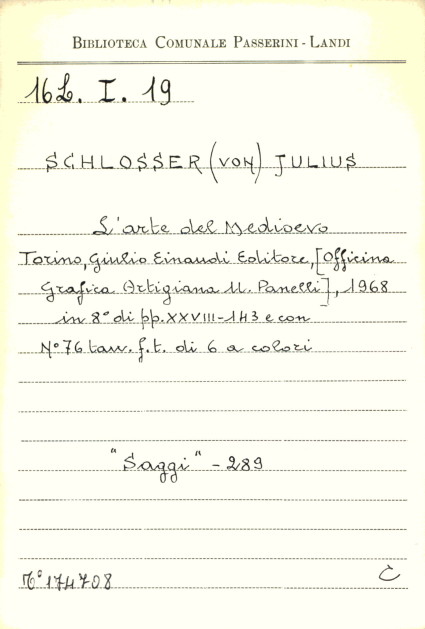 BIBLIOTECA COMUNALE PASSERINI - LANDI
16L. I. 19
SCHLOSSER (VON) JULIUS
L'arte del Medioevo
Torino, Giulio Einaudi Editore, [Officina
Grafica Artigiana U. Panelli], 1968
in 8° di pp. XXVIII-143 e con
N° 76 tav. f.t. di 6 a colori
"Saggi" - 289
N° 174708
C